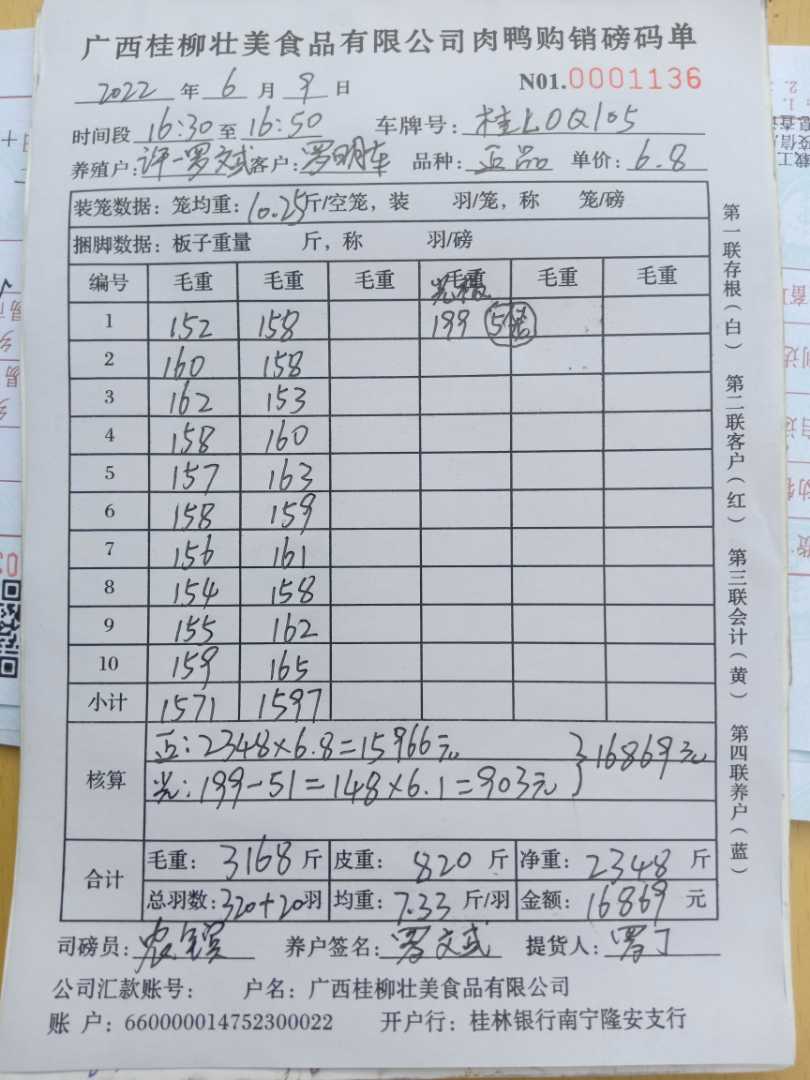 广西桂柳壮美食品有限公司肉鸭购销磅码单
2022 年 6 月 9 日 N01.0001136
时间段 16:30 至 16:50 车牌号: 桂L0Q105
养殖户: 许一罗文武 客户: 罗明车 品种: 正品 单价: 6.8
装笼数据: 笼均重: 10.25 斤/空笼, 装 羽/笼, 称 笼/磅
捆脚数据: 板子重量 斤, 称 羽/磅
编号 毛重 毛重 毛重 毛重 毛重 毛重
光板
1 152 158 199 5储
2 160 158
3 162 153
4 158 160
5 157 163
6 158 159
7 156 161
8 154 158
9 155 162
10 159 165
小计 1571 1597
核算
正: 2348×6.8=15966元
光: 199-51=148×6.1=903元
}16869元
合计
毛重: 3168 斤 皮重: 820 斤 净重: 2348 斤
总羽数: 320+20 羽 均重: 7.33 斤/羽 金额: 16869 元
司磅员: 养户签名: 罗文武 提货人: 罗丁
公司汇款账号: 户名: 广西桂柳壮美食品有限公司
账 户: 660000014752300022 开户行: 桂林银行南宁隆安支行
第一联存根(白) 第二联客户(红) 第三联会计(黄) 第四联养户(蓝)